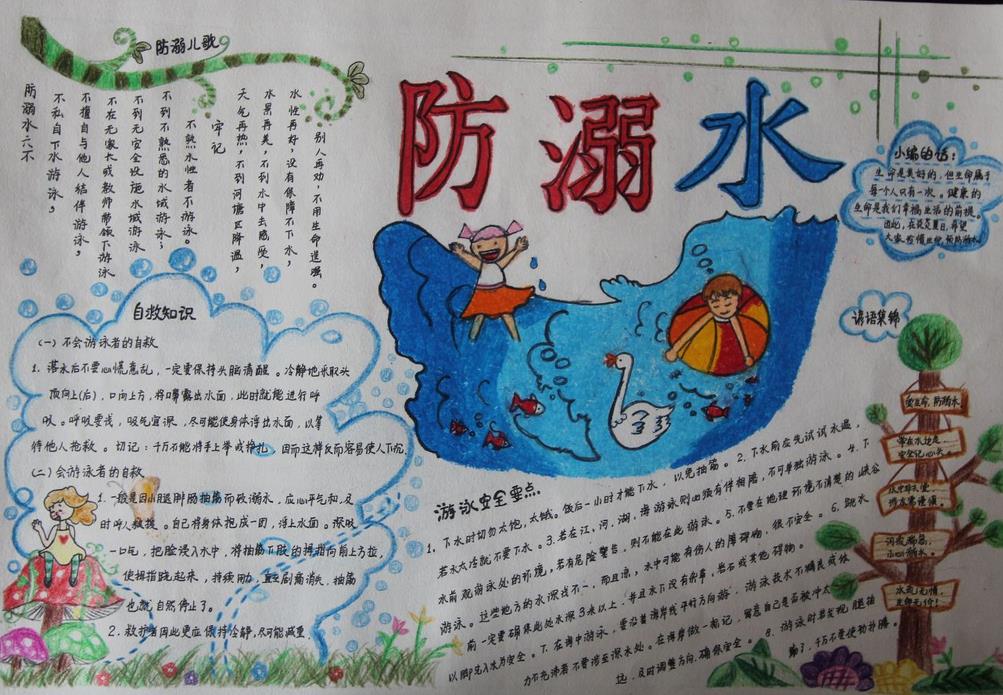 防溺儿歌
防溺水六不
不私自下水游泳；
不擅自与他人结伴游泳；
不在无家长或教师带领下游泳
不到无安全设施水域游泳
不到不熟悉的水域游泳；
不熟水性者不游泳。
牢记
天气再热，不到河塘区降温；
水景再美，不到水中去感受，
水性再好，没有保障不下水，
别人再劝，不用生命逞强。
防溺水
小编的话：
生命是美好的，但生命属于
每个人只有一次。健康的
生命是我们幸福生活的前提。
因此，在炎炎夏日，希望
大家
自救知识
(一)不会游泳者的自救
1. 落水后不要心慌意乱，一定要保持头脑清醒。冷静地采取头
顶向上(后)，口向上方，将口鼻露出水面，此时就能进行呼
吸。呼吸要浅，吸气宜深，尽可能使身体浮出水面，以等
待他人抢救。切记：千万不能将手上举或挣扎，因而这样反而容易使人下沉
(二)会游泳者的自救
1. 一般是因小腿腓肠抽筋而致溺水，应心平气和，及
时呼人救援。自己将身体抱成一团，浮上水面。深吸
一口气，把脸浸入水中，将抽筋下肢的拇指向前上方拉，
使拇指跷起来，持续用力，直至剧痛消失，抽筋
也就自然停止了。
2. 救护者因此更应保持冷静，尽可能减重
游泳安全要点
1. 下水时切勿太饱，太饿。饭后一小时才能下水，以免抽筋。2. 下水前应先试试水温，
若水太冷就不要下水。3. 若在江、河、湖、海游泳则必须有伴相陪，不可单独游泳。4. 下
水前观游泳处的环境，若有危险警告，则不能在此游泳。5. 不要在地理环境不清楚的峡谷
游泳。这些地方的水深浅不一，而且凉，水中可能有伤人的障碍物，很不安全。6. 跳水
前一定要确保此处水深3米以上，并且水下没有杂草、岩石或其他障碍物。
以脚先入水为安全。7. 在海中游泳，要沿着海岸线平行方向游，游泳技术不精良或体
力不充沛者不要涉至深水处。在海岸做一标记，留意自己是否被冲太
远，及时调整方向，确保安全。8. 游泳时若发现腿抽
筋了，千万不要使劲
谚语集锦
防溺水
安全记心头
水火无情